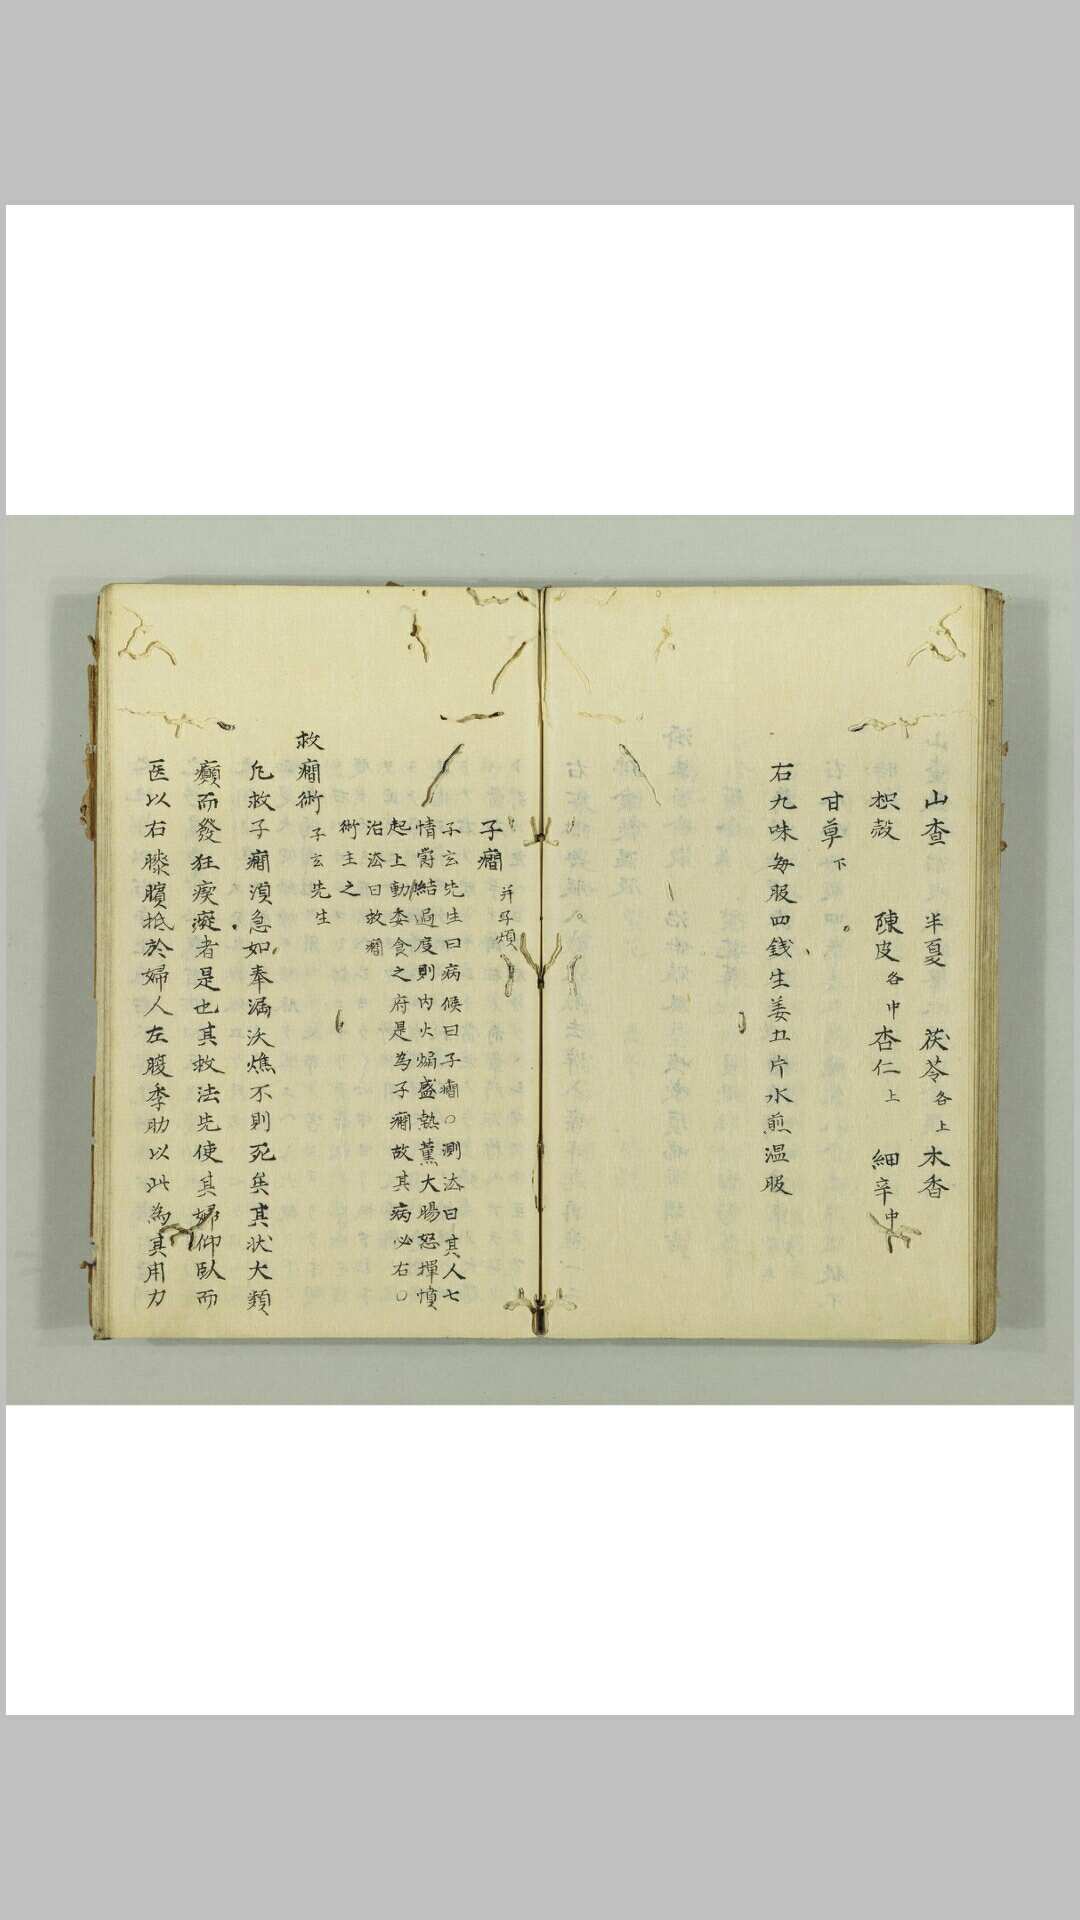 山査 半夏 茯苓各上 木香
枳殼 陳皮各中 杏仁上 細辛中
甘草下
右九味每服四錢生姜五片水煎温服
子癇并子煩
子玄先生曰病候曰子癇○測法曰其人七
情欝結過度則内火煽盛熱薫大腸怒揮憤
起上動委食之府是為子癇故其病必右○
治法曰救癇
術主之
救癇術子玄先生
凡救子癇湏急如奉漏沃燋不則死矣其状大類
癲而發狂瘈瘲者是也其救法先使其婦仰臥而
医以右膝臏抵於婦人左腹季肋以此為其用力